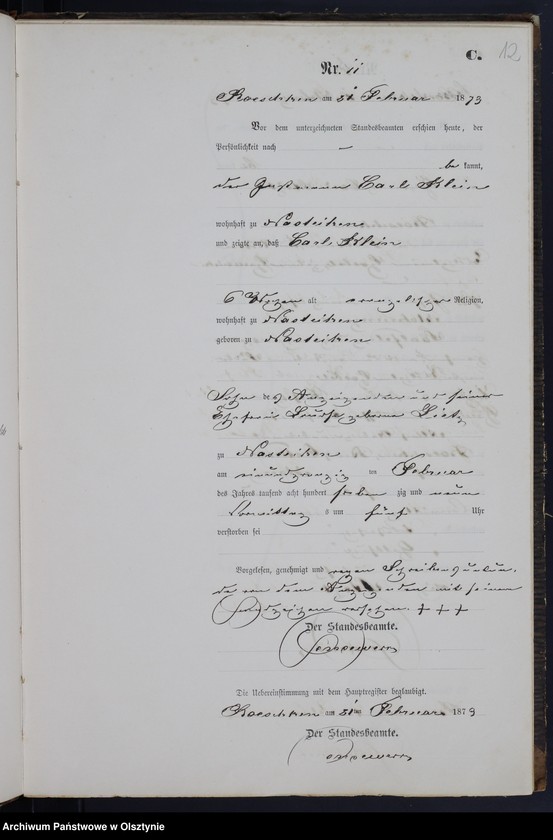 C. 12
Nr. 11
am 21 Februar 1879
Vor dem unterzeichneten Standesbeamten erschien heute, der
Persönlichkeit nach —
be kannt,
der Carl Klein
wohnhaft zu Nasteiken
und zeigte an, daß Carl Klein
6 Wochen alt evangelischer Religion,
wohnhaft zu Nasteiken
geboren zu Nasteiken
Sohn des Anzeigenden und seiner
Ehefrau geborene
zu Nasteiken
am einundzwanzig ten Februar
des Jahres tausend acht hundert sieben zig und neun
Vormittags um fünf Uhr
verstorben sei
Vorgelesen, genehmigt und wegen
da von dem Anzeigenden mit seinen
Handzeichen versehen. + + +
Der Standesbeamte.
Die Uebereinstimmung mit dem Hauptregister beglaubigt.
am 21 ten Februar 1879
Der Standesbeamte.
Archiwum Państwowe w Olsztynie